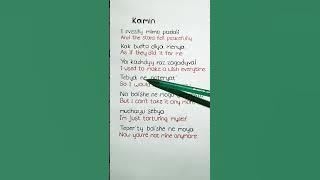 Kamin
I zvezdy mimo padali
And the stars fell peacefully
Kak budto dlya menya
As if they did it for me
Ya kazhdyy raz zagadyval
I used to make a wish everytime
Tebya ne poteryat'
So I would
No bol'she ne moya
But I can't take it any more
muchayu sebya
I'm just torturing myself
Teper' ty bol'she ne moya
Now you're not mine anymore